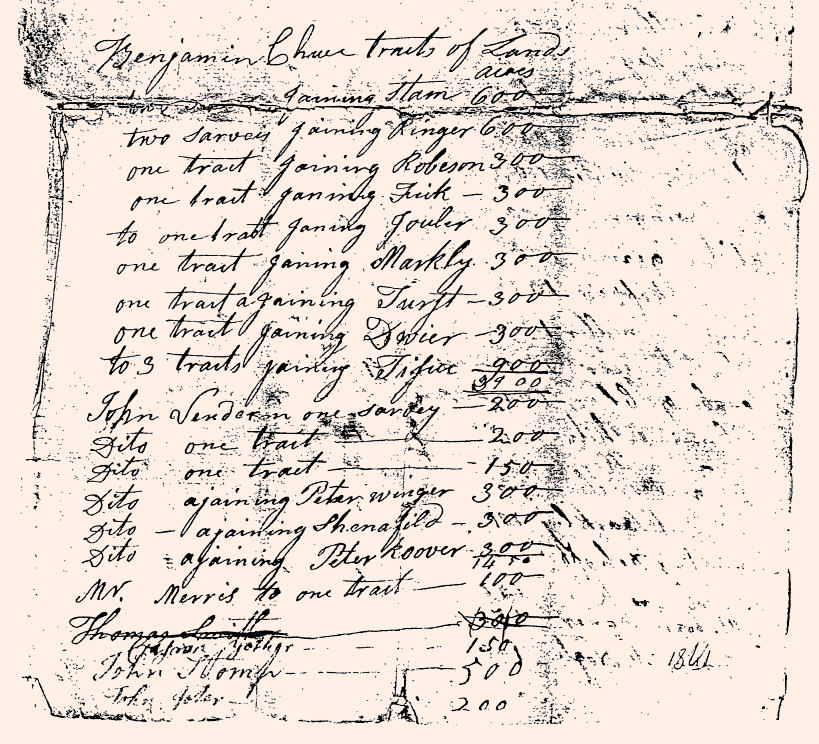 Benjamin Chuee traits of Lands
acres
Jaining Ham 600
two sarveis Jaining Ringer 600
one trait Jaining Robeson 300
one trait Janing Fick - 300
to one tratt Janing Jouler 300
one trait Janing Markly 300
one trait ajaining Turst - 300
one trait Jaining Dwier - 300
to 3 traits jaining 900
3900
John one sarvey - 200
Dito one trait 200
Dito one traet 150
Dito ajaining Peter winger 300
Dito - ajaining Shenafild - 300
Dito - ajaining Peter Koover 300
1450
Mr. Merris to one trait 100
Thomas 300
150
John 500
John 200